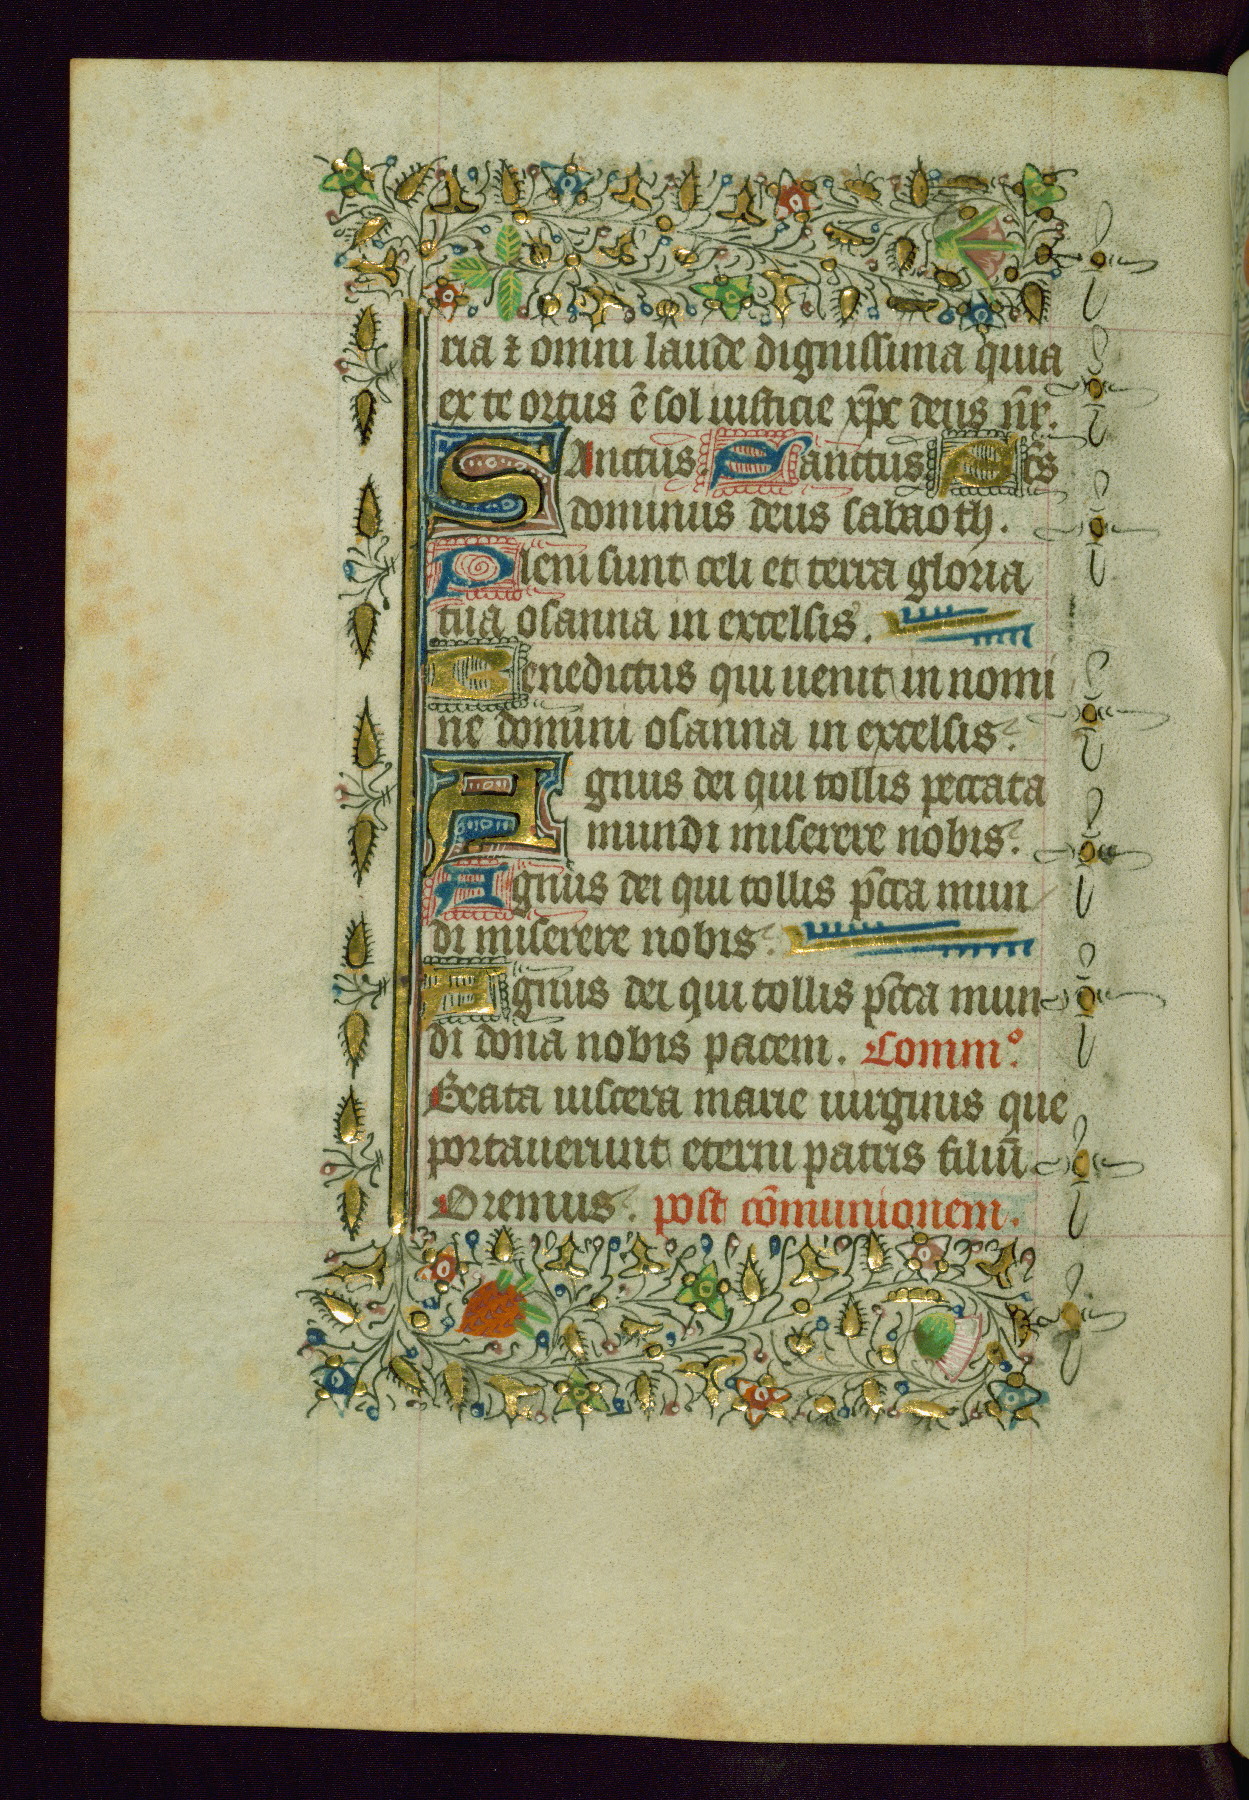 ria ⁊ omni laude dignissima quia
ex te ortus ē sol iusticie xp̄c deus nr̄.
SAnctus. Sanctus. Sc̄s
dominus deus sabaoth.
Pleni sunt celi et terra gloria
tua osanna in excelsis.
Benedictus qui uenit in nomi
ne domini osanna in excelsis.
Agnus dei qui tollis peccata
mundi miserere nobis.
Agnus dei qui tollis pc̄ca mun
di miserere nobis.
Agnus dei qui tollis pc̄ca mun
di dona nobis pacem. Comm°.
Beata uiscera marie uirginis que
portauerunt eterni patris filiū
Oremus. post cōmunionem.